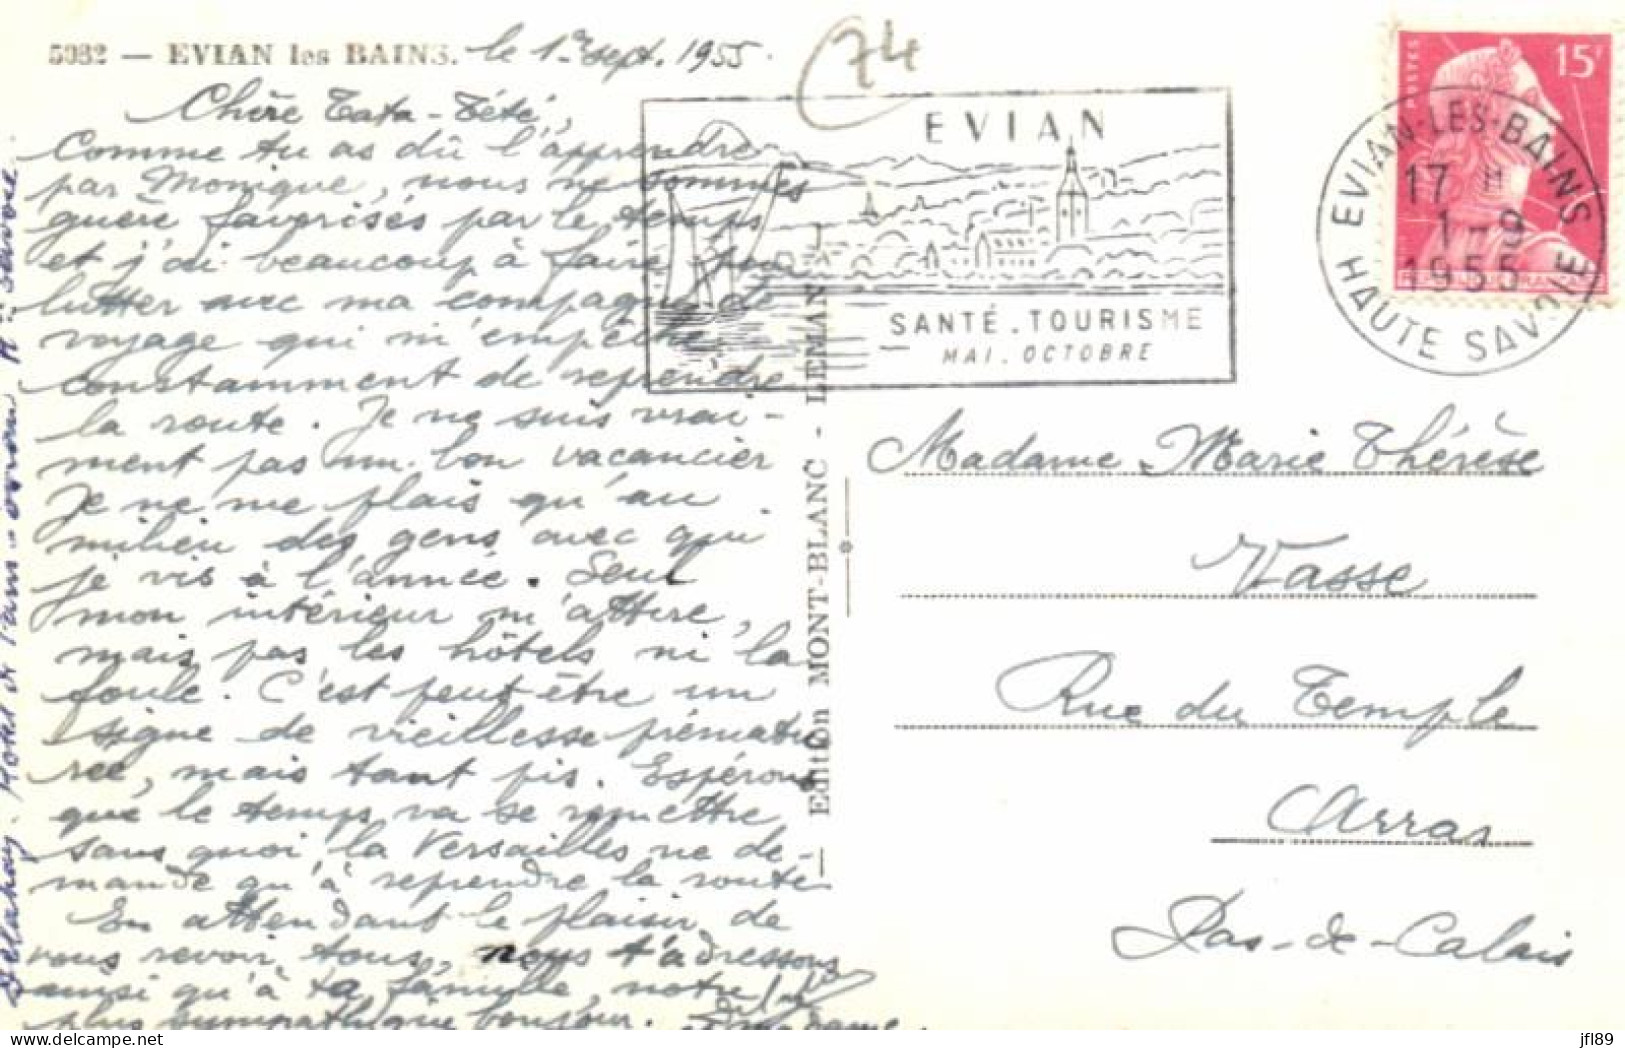 5082 — EVIAN les BAINS.
le 1er sept. 1955.
74
Chère Tata-Tété,
Comme tu as dû l'apprendre
par Monique, nous ne sommes
guère favorisés par le temps
et j'ai beaucoup à faire pour
lutter avec ma compagne de
voyage qui m'empêche
constamment de reprendre
la route. Je ne suis vrai-
ment pas un bon vacancier
Je ne me plais qu'au
milieu des gens avec qui
je vis à l'année. Seul
mon intérieur m'attire,
mais pas les hôtels ni la
foule. C'est peut-être un
signe de vieillesse prématu
rée, mais tant pis. Espérons
que le temps va se remettre
sans quoi la Versailles ne de-
mande qu'à reprendre la route
En attendant le plaisir de
vous revoir tous, nous t'adressons
ainsi qu'à ta famille, notre
plus sympathique bonjour.
Delahay, Hotel de Paris
— Edition MONT-BLANC - LEMAN
EVIAN
SANTÉ. TOURISME
MAI. OCTOBRE
POSTES
15F
EVIAN-LES-BAINS
17 H
1-9
1955
HAUTE SAVOIE
Madame Marie Thérèse
Vasse
Rue du Temple
Arras
Pas-de-Calais
jfl89